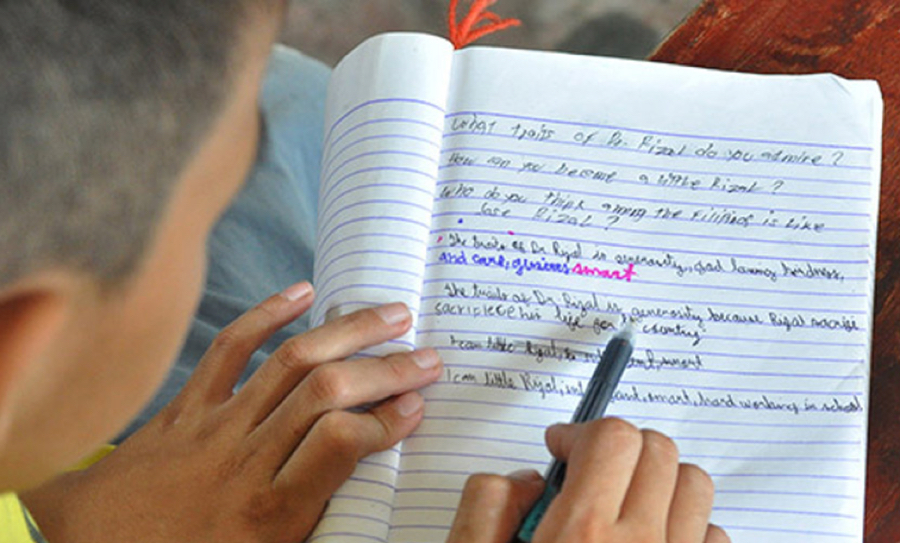 What traits of Dr. Rizal do you admire?
How can you become a little Rizal?
Who do you think among the Filipinos is like
Jose Rizal?
The traits of Dr. Rizal is generousity, God loving kindness,
and care, genious smart
The traits of Dr. Rizal is, generosity because Rizal
his life for country
I can little Rizal, smart
I can little Rizal, smart, hard working in school